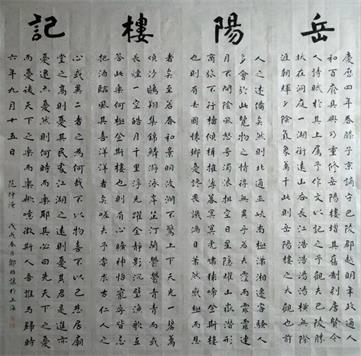 岳陽樓記
慶歷四年春滕子京謫守巴陵郡越明年政通人
和百廢具興乃重修岳陽樓增其舊制刻唐賢今
人詩賦於其上屬予作文以記之予觀夫巴陵勝
狀在洞庭一湖銜遠山吞長江浩浩湯湯橫無際
涯朝暉夕陰氣象萬千此則岳陽樓之大觀也前
人之述備矣然則北通巫峽南極瀟湘遷客騷人
多會於此覽物之情得無異乎若夫霪雨霏霏連
月不開陰風怒號濁浪排空日星隱曜山嶽潛形
商旅不行檣傾楫摧薄暮冥冥虎嘯猿啼登斯樓
也則有去國懷鄉憂讒畏譏滿目蕭然感極而悲
者矣至若春和景明波瀾不驚上下天光一碧萬
頃沙鷗翔集錦鱗游泳岸芷汀蘭郁郁青青而或
長煙一空皓月千里浮光躍金靜影沉璧漁歌互
答此樂何極登斯樓也則有心曠神怡寵辱皆忘
把酒臨風其喜洋洋者矣嗟夫予嘗求古仁人之
心或異二者之為何哉不以物喜不以己悲居廟
堂之高則憂其民處江湖之遠則憂其君是進亦
憂退亦憂然則何時而樂耶其必曰先天下之憂
而憂後天下之樂而樂歟噫微斯人吾誰與歸時
六年九月十五日 范仲淹 戊戌春月 於上海